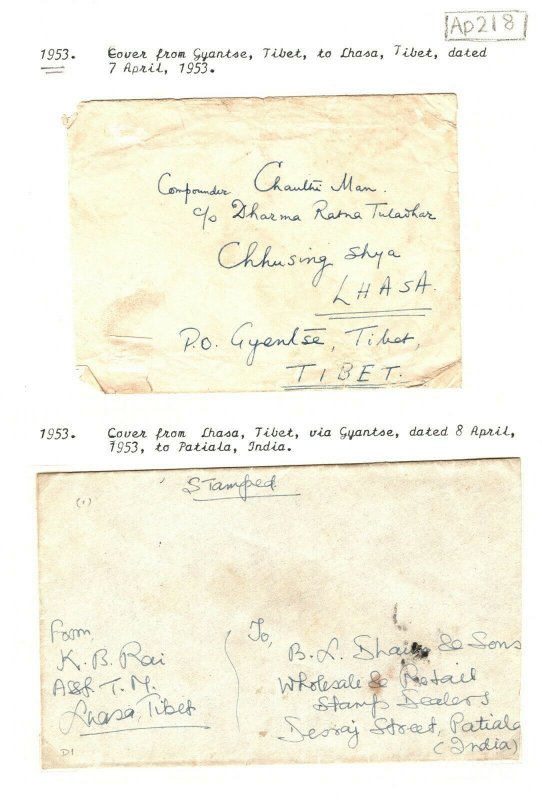 Ap218
1953. Cover from Gyantse, Tibet, to Lhasa, Tibet, dated
7 April, 1953.
Compounder Chauthi Man.
c/o Dharma Ratna Tuladhar
Chhusing Shya
LHASA.
P.O. Gyentse, Tibet,
TIBET.
1953. Cover from Lhasa, Tibet, via Gyantse, dated 8 April,
1953, to Patiala, India.
Stamped
(1)
From
K. B. Rai
Asst. T. M.
Lhasa, Tibet
D1
To,
B. L. & Sons
Wholesale & Retail
Stamp Dealers
Desraj Street, Patiala
(India)